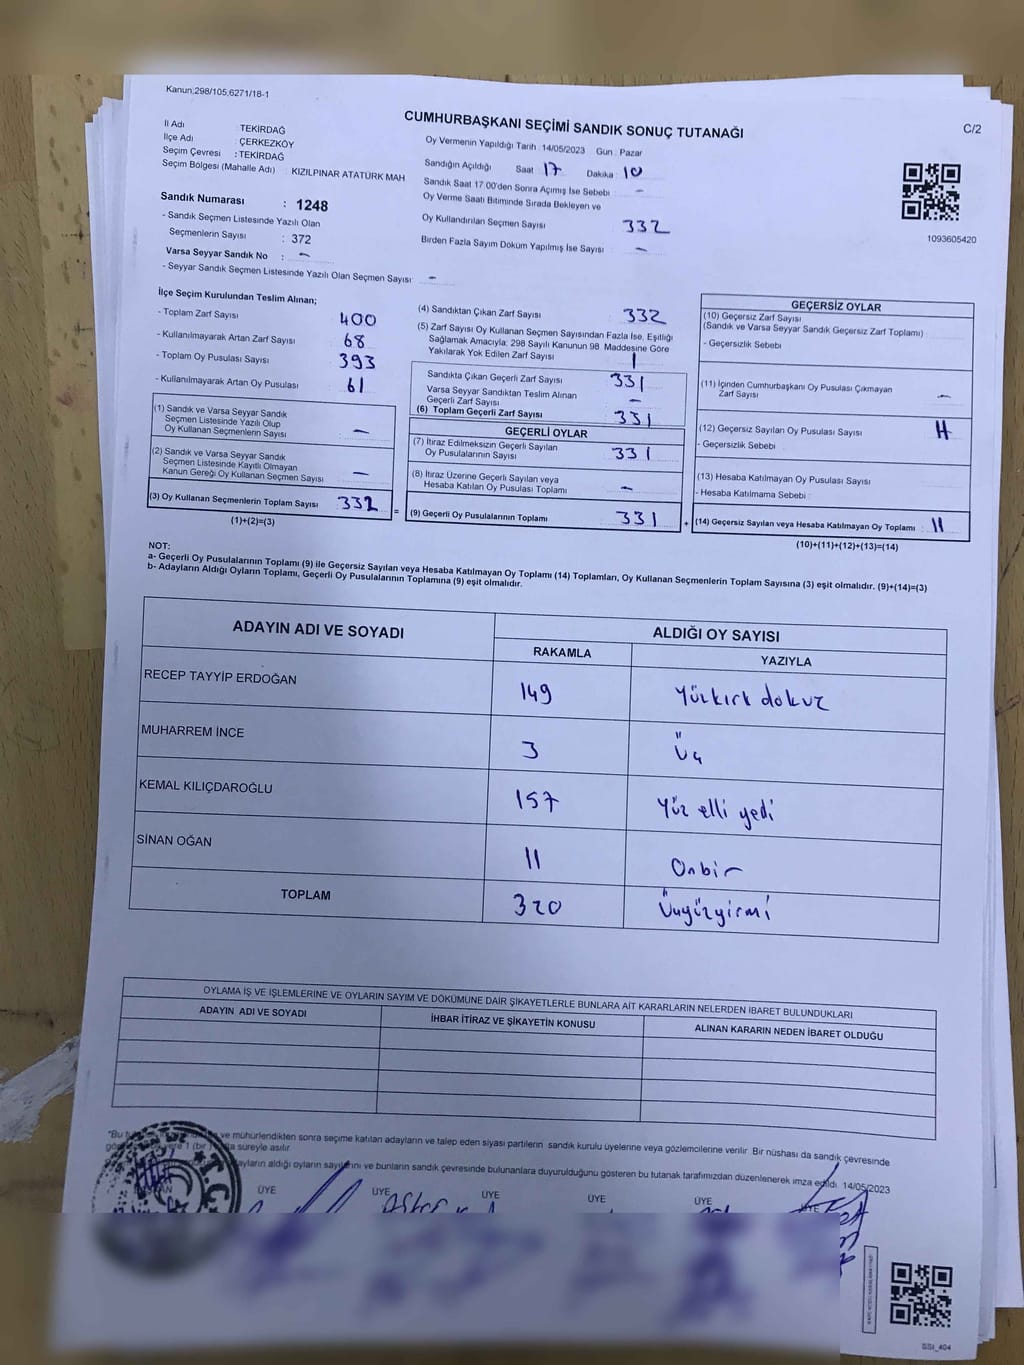 Kanun:298/105,6271/18-1
CUMHURBAŞKANI SEÇİMİ SANDIK SONUÇ TUTANAĞI
C/2
İl Adı : TEKİRDAĞ
İlçe Adı : ÇERKEZKÖY
Seçim Çevresi : TEKİRDAĞ
Seçim Bölgesi (Mahalle Adı) : KIZILPINAR ATATÜRK MAH
Sandık Numarası : 1248
- Sandık Seçmen Listesinde Yazılı Olan
Seçmenlerin Sayısı : 372
Varsa Seyyar Sandık No : -
- Seyyar Sandık Seçmen Listesinde Yazılı Olan Seçmen Sayısı : -
Oy Vermenin Yapıldığı Tarih : 14/05/2023 Gün : Pazar
Sandığın Açıldığı Saat 17 Dakika 10
Sandık Saat 17:00'den Sonra Açımış İse Sebebi : -
Oy Verme Saati Bitiminde Sırada Bekleyen ve
Oy Kullandırılan Seçmen Sayısı : 332
Birden Fazla Sayım Döküm Yapılmış İse Sayısı : -
1093605420
İlçe Seçim Kurulundan Teslim Alınan;
- Toplam Zarf Sayısı : 400
- Kullanılmayarak Artan Zarf Sayısı : 68
- Toplam Oy Pusulası Sayısı : 393
- Kullanılmayarak Artan Oy Pusulası : 61
(1) Sandık ve Varsa Seyyar Sandık
Seçmen Listesinde Yazılı Olup
Oy Kullanan Seçmenlerin Sayısı : -
(2) Sandık ve Varsa Seyyar Sandık
Seçmen Listesinde Kayıtlı Olmayan
Kanun Gereği Oy Kullanan Seçmen Sayısı : -
(3) Oy Kullanan Seçmenlerin Toplam Sayısı : 332
(1)+(2)=(3)
(4) Sandıktan Çıkan Zarf Sayısı : 332
(5) Zarf Sayısı Oy Kullanan Seçmen Sayısından Fazla İse, Eşitliği
Sağlamak Amacıyla; 298 Sayılı Kanunun 98. Maddesine Göre
Yakılarak Yok Edilen Zarf Sayısı : 1
Sandıkta Çıkan Geçerli Zarf Sayısı : 331
Varsa Seyyar Sandıktan Teslim Alınan
Geçerli Zarf Sayısı : -
(6) Toplam Geçerli Zarf Sayısı : 331
GEÇERLİ OYLAR
(7) İtiraz Edilmeksizin Geçerli Sayılan
Oy Pusulalarının Sayısı : 331
(8) İtiraz Üzerine Geçerli Sayılan veya
Hesaba Katılan Oy Pusulası Toplamı : -
= (9) Geçerli Oy Pusulalarının Toplamı : 331
GEÇERSİZ OYLAR
(10) Geçersiz Zarf Sayısı
(Sandık ve Varsa Seyyar Sandık Geçersiz Zarf Toplamı)
- Geçersizlik Sebebi :
(11) İçinden Cumhurbaşkanı Oy Pusulası Çıkmayan
Zarf Sayısı : -
(12) Geçersiz Sayılan Oy Pusulası Sayısı :
- Geçersizlik Sebebi :
(13) Hesaba Katılmayan Oy Pusulası Sayısı
- Hesaba Katılmama Sebebi :
+ (14) Geçersiz Sayılan veya Hesaba Katılmayan Oy Toplamı : 11
(10)+(11)+(12)+(13)=(14)
NOT:
a- Geçerli Oy Pusulalarının Toplamı (9) ile Geçersiz Sayılan veya Hesaba Katılmayan Oy Toplamı (14) Toplamları, Oy Kullanan Seçmenlerin Toplam Sayısına (3) eşit olmalıdır. (9)+(14)=(3)
b- Adayların Aldığı Oyların Toplamı, Geçerli Oy Pusulalarının Toplamına (9) eşit olmalıdır.
ADAYIN ADI VE SOYADI
ALDIĞI OY SAYISI
RAKAMLA YAZIYLA
RECEP TAYYİP ERDOĞAN 149 Yüzkırk dokuz
MUHARREM İNCE 3 Üç
KEMAL KILIÇDAROĞLU 157 Yüz elli yedi
SİNAN OĞAN 11 Onbir
TOPLAM 320 Üçyüzyirmi
OYLAMA İŞ VE İŞLEMLERİNE VE OYLARIN SAYIM VE DÖKÜMÜNE DAİR ŞİKAYETLERLE BUNLARA AİT KARARLARIN NELERDEN İBARET BULUNDUKLARI
ADAYIN ADI VE SOYADI İHBAR İTİRAZ VE ŞİKAYETİN KONUSU ALINAN KARARIN NEDEN İBARET OLDUĞU
*Bu ve mühürlendikten sonra seçime katılan adayların ve talep eden siyasi partilerin sandık kurulu üyelerine veya gözlemcilerine verilir. Bir nüshası da sandık çevresinde
süreyle asılır.
aldığı oyların sayılarını ve bunların sandık çevresinde bulunanlara duyurulduğunu gösteren bu tutanak tarafımızdan düzenlenerek imza edildi. 14/05/2023
ÜYE ÜYE ÜYE ÜYE ÜYE ÜYE
T.C.
SSI_404